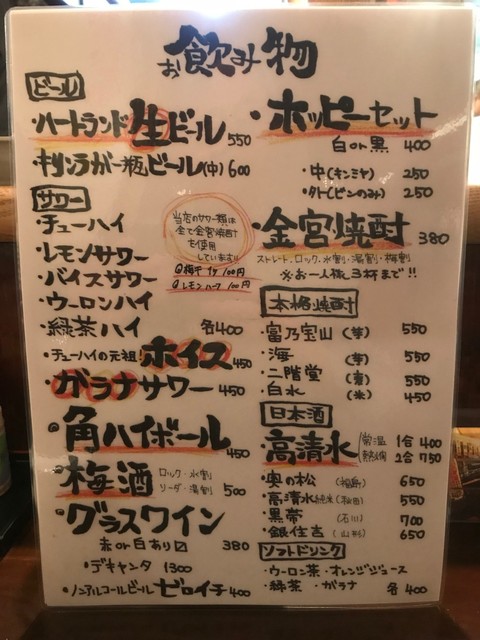 お飲み物
ビール
・ハートランド生ビール 550
・キリンラガー瓶ビール(中) 600
サワー
・チューハイ
・レモンサワー
・バイスサワー
・ウーロンハイ
・緑茶ハイ 各400
当店のサワー類は
全て金宮焼酎
を使用
しています!!
◎梅干 1ヶ 100円
◎レモンハーフ 100円
・チューハイの元祖!ホイス 450
・ガラナサワー 450
・角ハイボール 450
・梅酒 ロック・水割
ソーダ・湯割 500
・グラスワイン
赤or白あり〼 380
・デキャンタ 1300
・ノンアルコールビール ゼロイチ 400
・ホッピーセット
白or黒 400
・中(キンミヤ) 250
・外(ビンのみ) 250
・金宮焼酎 380
ストレート・ロック・水割・湯割・梅割
※お一人様3杯まで!!
本格焼酎
・富乃宝山 (芋) 550
・海 (芋) 550
・二階堂 (麦) 550
・白水 (米) 450
日本酒
・高清水 常温 1合 400
熱燗 2合 750
・奥の松 (福島) 650
・高清水純米 (秋田) 550
・黒帯 (石川) 700
・銀住吉 (山形) 650
ソフトドリンク
・ウーロン茶・オレンジジュース
・緑茶・ガラナ 各400